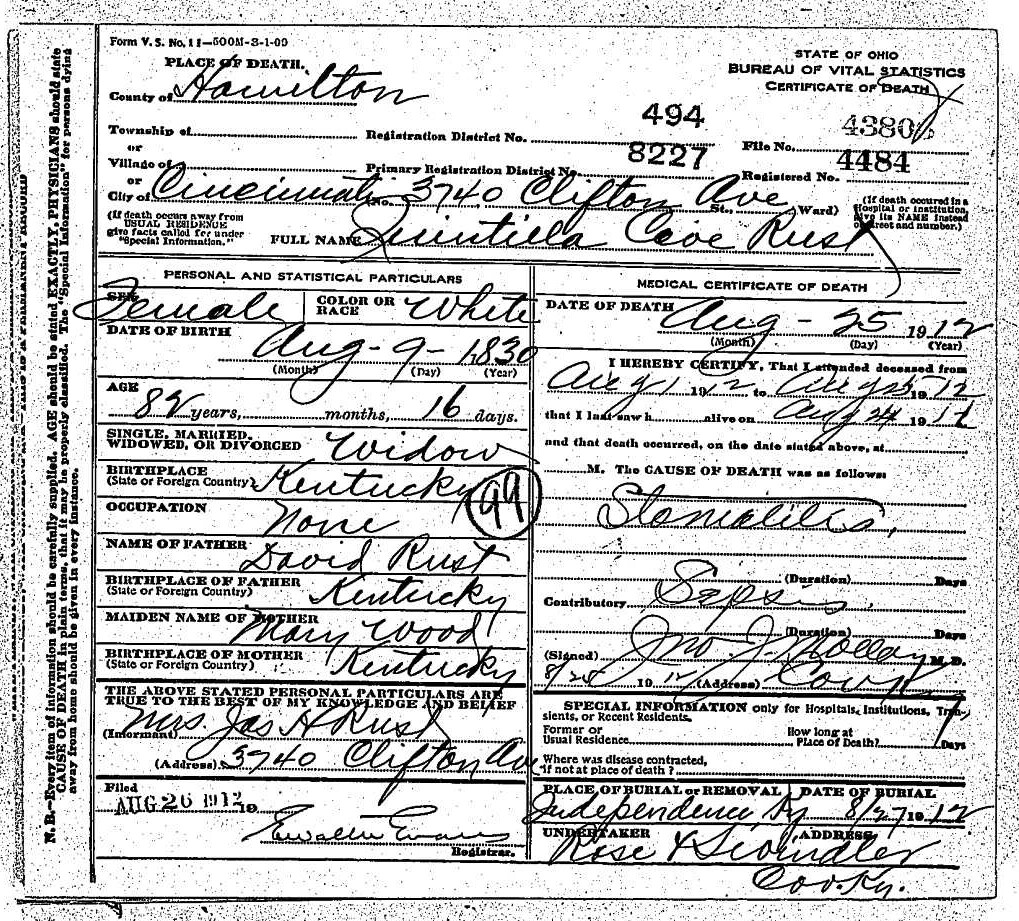 Form V. S. No. 11—500M-3-1-09
STATE OF OHIO
BUREAU OF VITAL STATISTICS
CERTIFICATE OF DEATH
PLACE OF DEATH.
County of Hamilton
Township of
or
Village of
or
City of Cincinnati No. 3740 Clifton Ave St., Ward)
Registration District No. 494
Primary Registration District No. 8227
File No. 4380
Registered No. 4484
(If death occurs away from
USUAL RESIDENCE
give facts called for under
"Special Information.")
(If death occurred in a
Hospital or institution,
give its NAME instead
of street and number.)
FULL NAME Quintilla Rust
PERSONAL AND STATISTICAL PARTICULARS
SEX Female COLOR OR RACE White
DATE OF BIRTH
Aug - 9 - 1830
(Month) (Day) (Year)
AGE
82 years, months, 16 days.
SINGLE, MARRIED,
WIDOWED, OR DIVORCED Widow
BIRTHPLACE
(State or Foreign Country) Kentucky
99
OCCUPATION None
NAME OF FATHER David Rust
BIRTHPLACE OF FATHER
(State or Foreign Country) Kentucky
MAIDEN NAME OF MOTHER Mary Wood
BIRTHPLACE OF MOTHER
(State or Foreign Country) Kentucky
THE ABOVE STATED PERSONAL PARTICULARS ARE
TRUE TO THE BEST OF MY KNOWLEDGE AND BELIEF
(Informant) Mrs. Jas H Rust
(Address) 3740 Clifton Ave
Filed
AUG 26 1912 19
Evans
Registrar.
MEDICAL CERTIFICATE OF DEATH
DATE OF DEATH Aug - 25 1912
(Month) (Day) (Year)
I HEREBY CERTIFY, That I attended deceased from
Aug 1 1912 to Aug 25 12
that I last saw h alive on Aug 24 1912
and that death occurred, on the date stated above, at
M. The CAUSE OF DEATH was as follows:
Stomatitis,
(Duration) Days
Contributory Sepsis,
(Duration) Days
(Signed) Jno. J. Molloy M. D.
1912 (Address) Cov Ky
SPECIAL INFORMATION only for Hospitals, Institutions, Tran-
sients, or Recent Residents.
Former or
Usual Residence
How long at
Place of Death? Days
Where was disease contracted,
if not at place of death ?
PLACE OF BURIAL or REMOVAL DATE OF BURIAL
Independence, Ky 8/27 1912
UNDERTAKER ADDRESS
Rose &
Cov. Ky.
N. B.—Every item of information should be carefully supplied. AGE should be stated EXACTLY, PHYSICIANS should state
CAUSE OF DEATH in plain terms, that it may be properly classified. The "Special Information" for persons dying
away from home should be given in every instance.